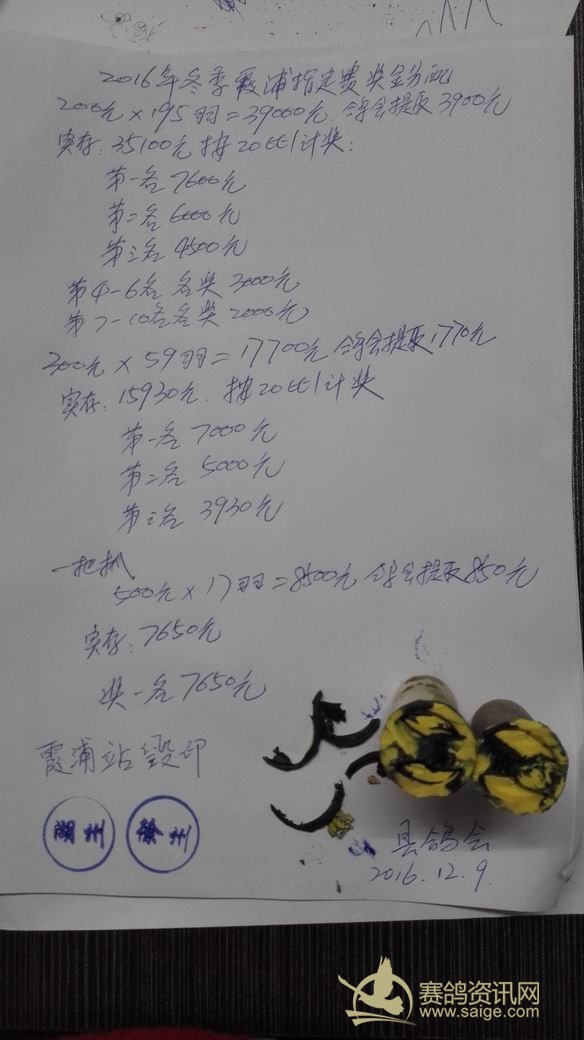 2016年冬季霞浦指定赛奖金分配
200元×195羽=39000元. 鸽会提取3900元
实存:35100元 按20比1计奖:
第一名 7600元
第二名 6000元
第三名 4500元
第4-6名 名奖 3000元
第7-10名名奖 2000元
300元×59羽=17700元 鸽会提取1770元
实存:15930元. 按20比1计奖
第一名 7000元
第二名 5000元
第三名 3930元
一把抓
500元×17羽=8500元 鸽会提取850元
实存:7650元
奖一名7650元
霞浦站毁印
湖州 徐州
县鸽会
2016.12.9.
赛鸽资讯网
www.saige.com